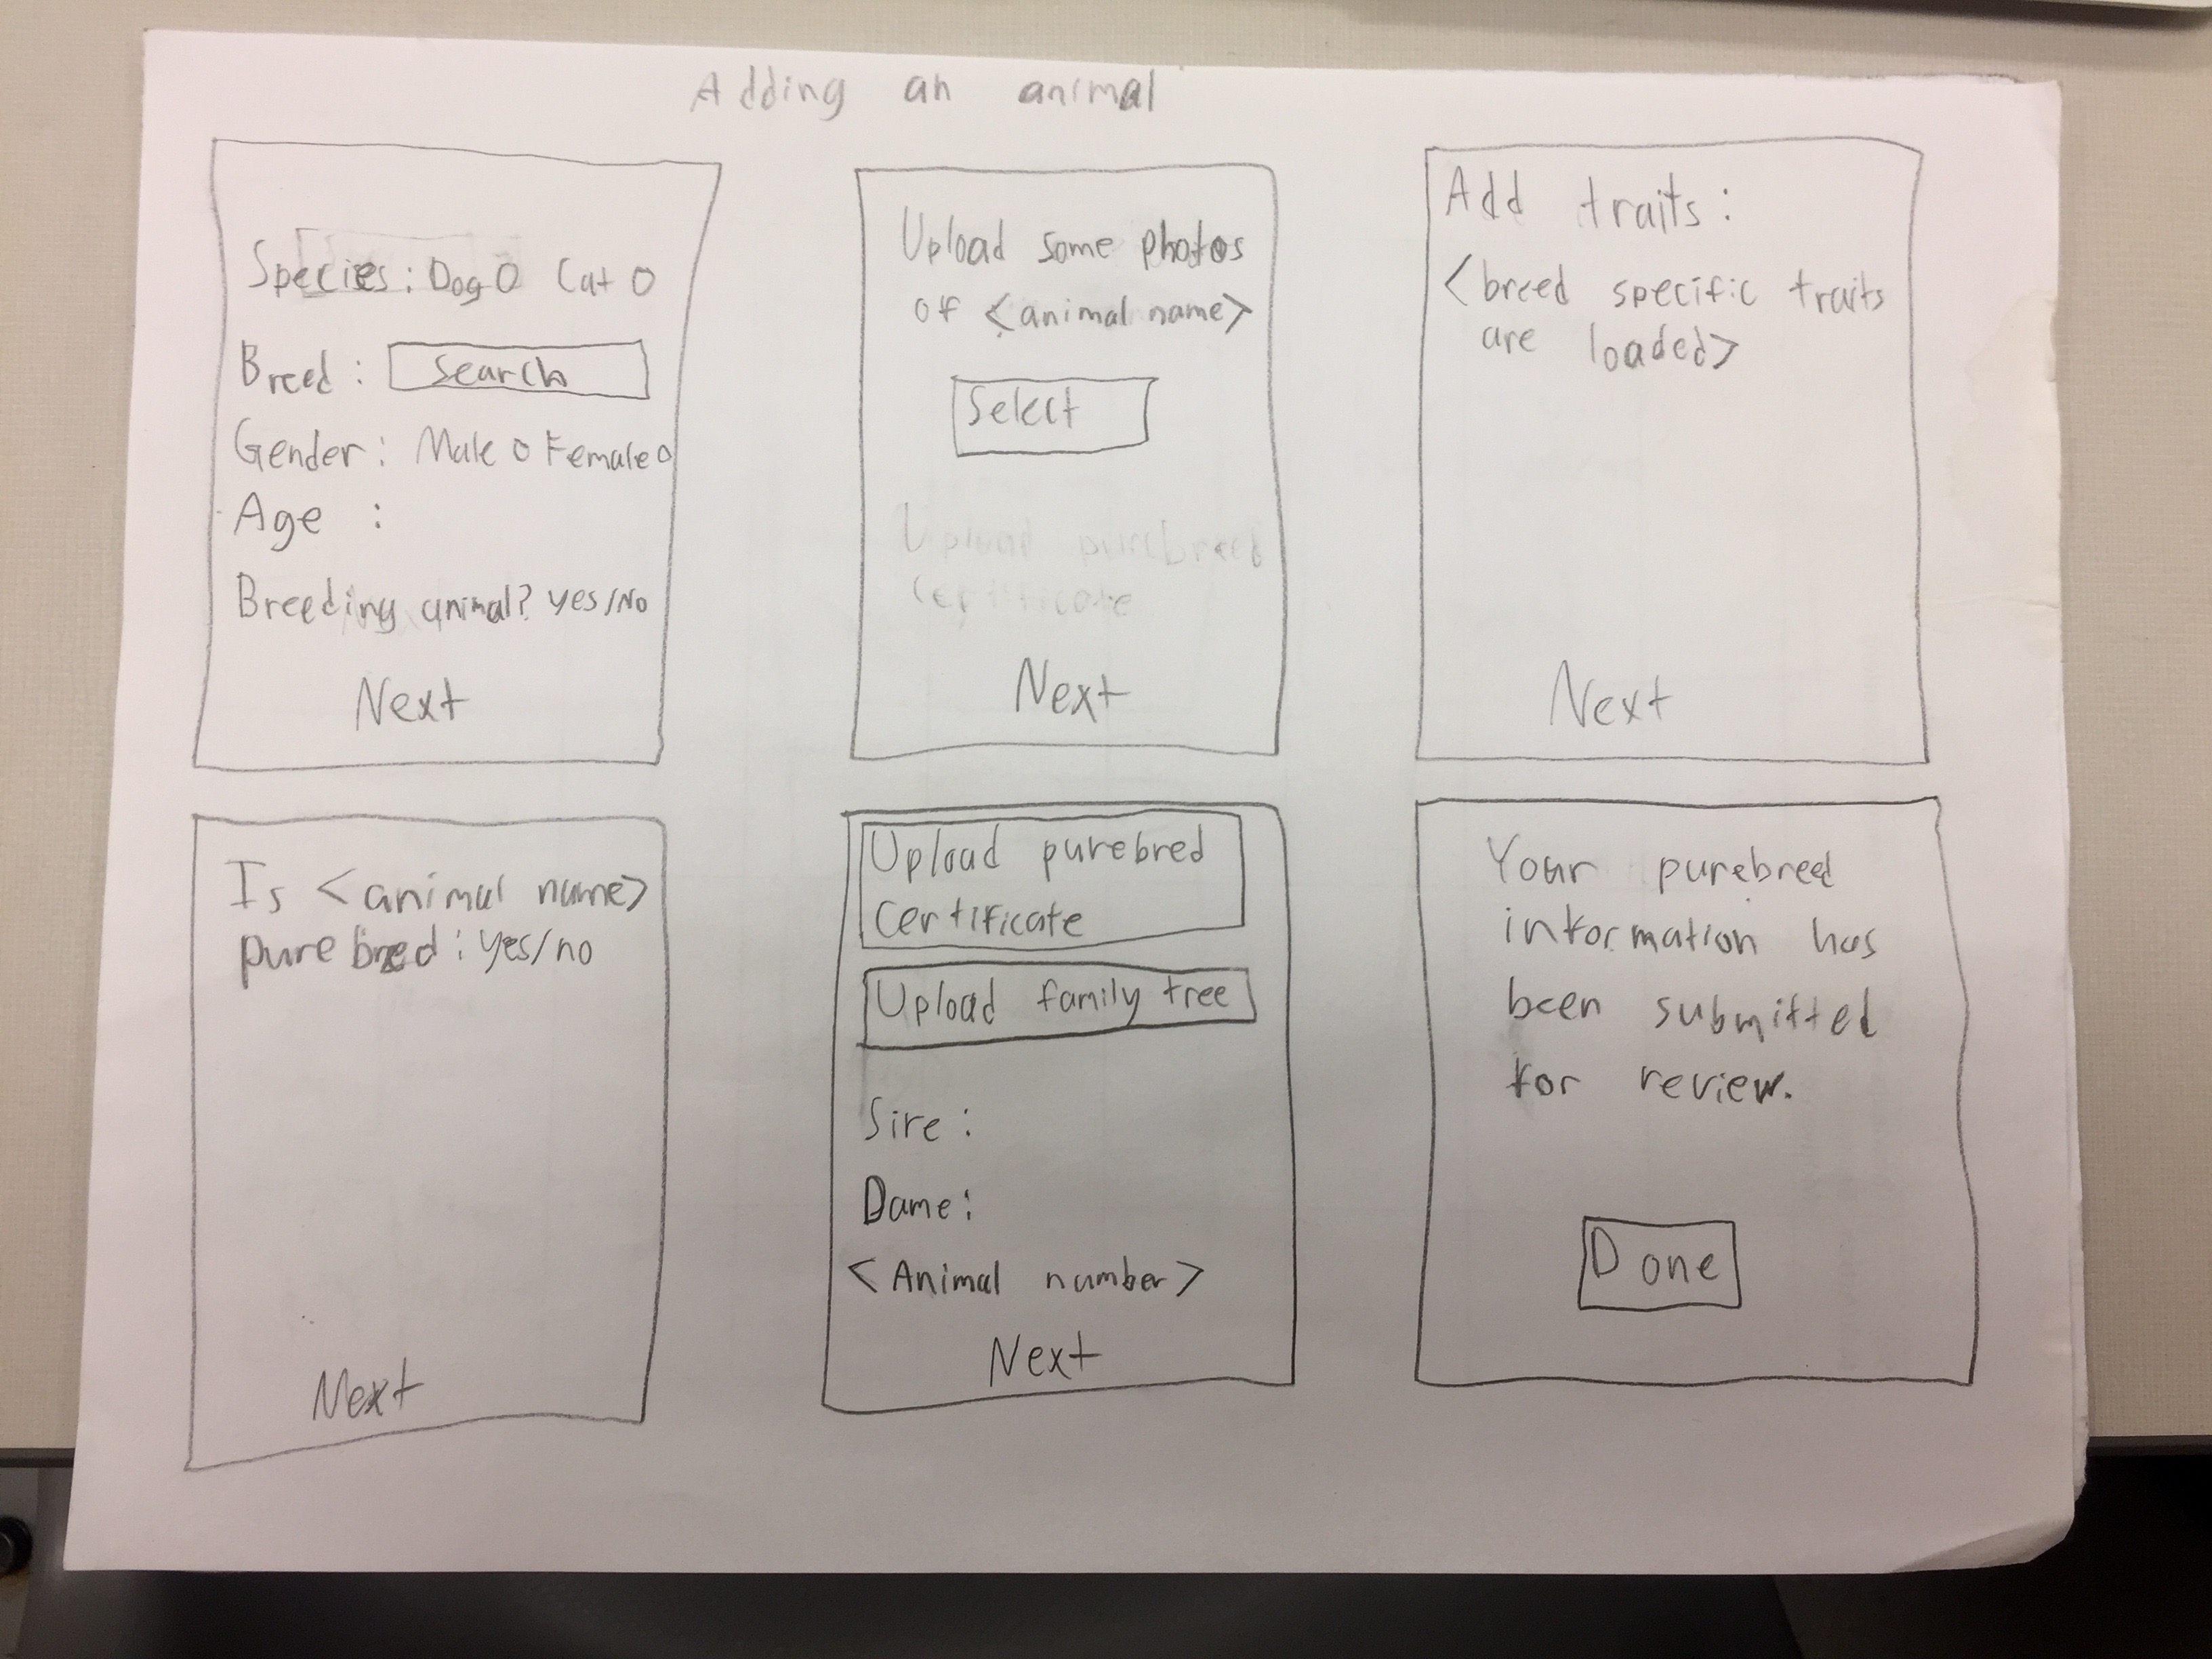 Adding an animal
Species: Dog O Cat O
Breed: Search
Gender: Male O Female O
Age :
Breeding animal? yes/No
Next
Upload some photos
of <animal name>
Select
Upload purebred
Certificate
Next
Add traits:
<breed specific traits
are loaded>
Next
Is <animal name>
purebred: yes/no
Next
Upload purebred
Certificate
Upload family tree
Sire :
Dame:
<Animal number>
Next
Your purebreed
information has
been submitted
for review.
Done